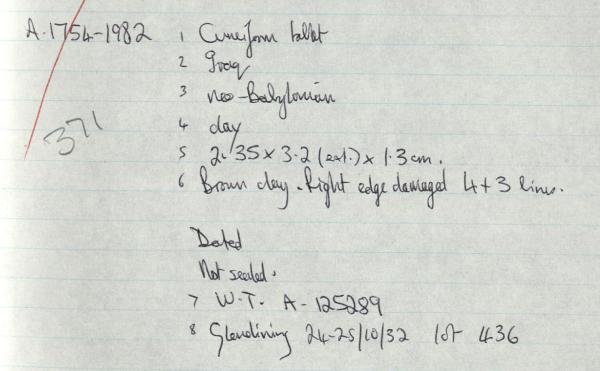 A.1754-1982 1 Cuneiform tablet
2 Iraq
3 neo-Babylonian
371
4 clay
5 2.35 x 3.2 (ext.) x 1.3 cm.
6 Brown clay. Right edge damaged 4+3 lines.
Dated
Not sealed.
7 W.T. A-125289
8 Glendining 24-25/10/32 lot 436